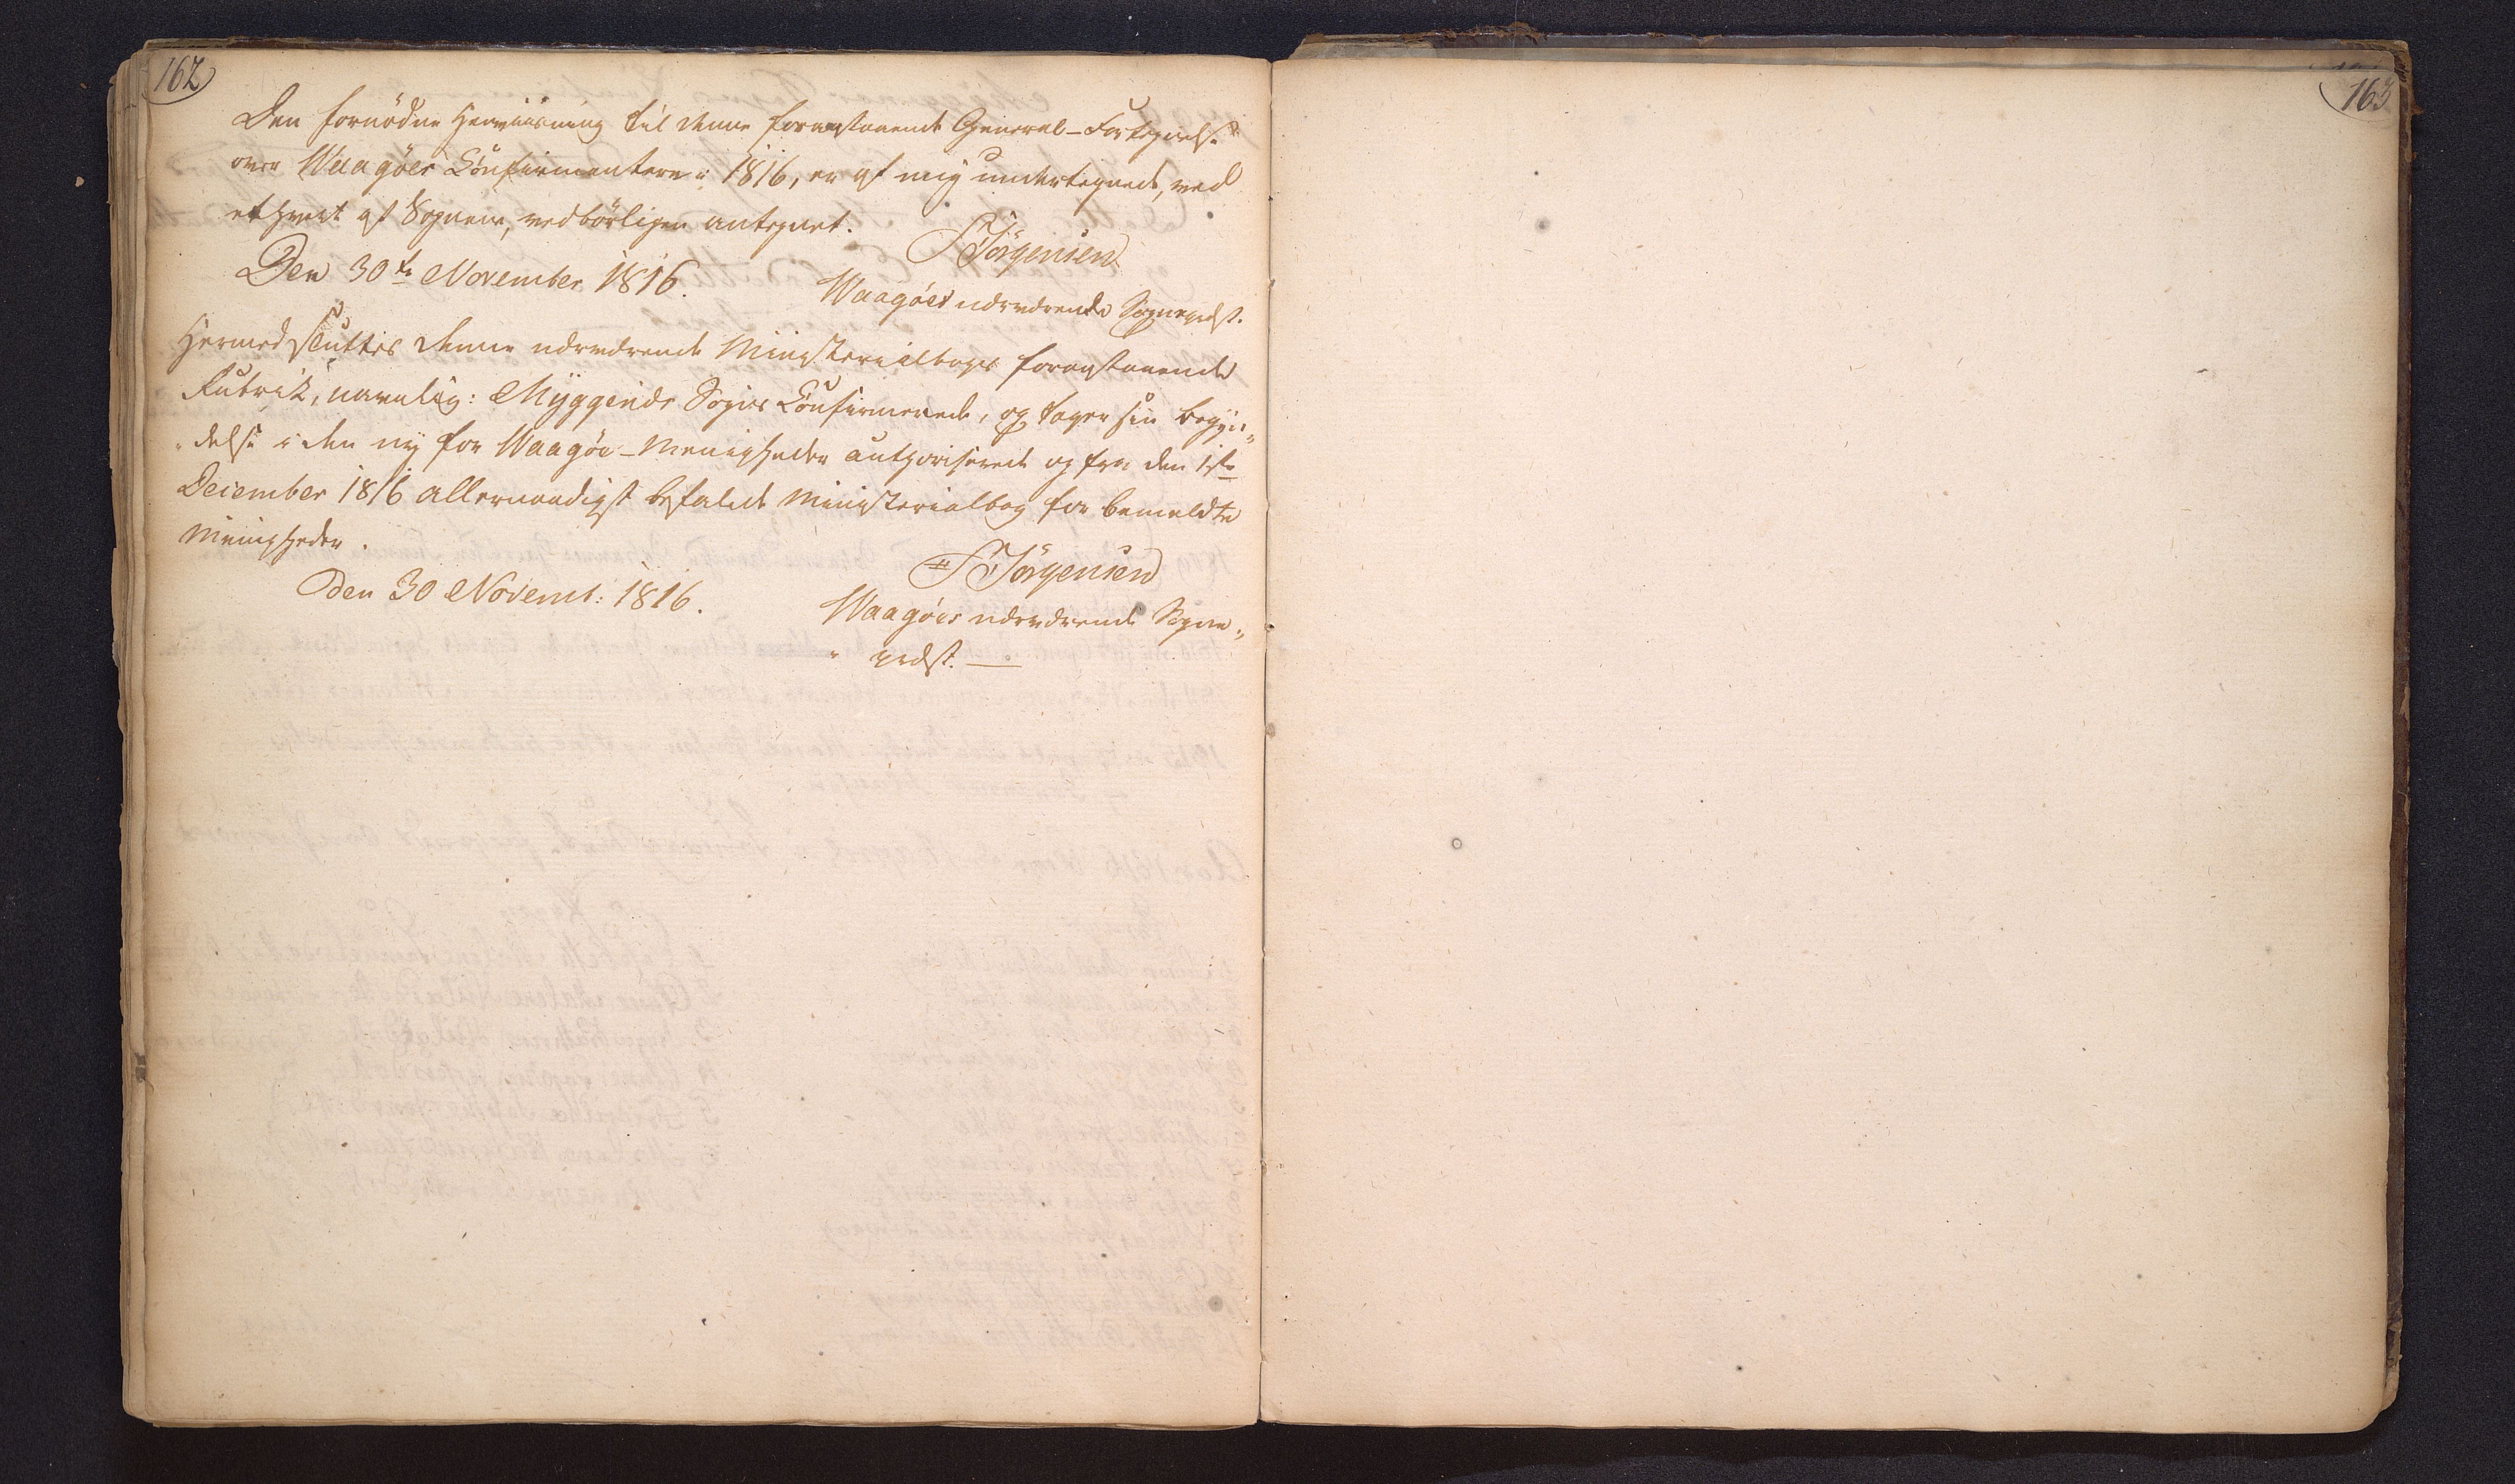 162
Den fornödne Henviisning til denne foranstaaende General-Fortegnelse
over Waagöes Confirmantere i 1816, er af mig undertegnede, ved
ethvert af Sognene, vedbörligen antegnet.
Den 30te November 1816.
Jörgensen
Waagöes nærværende Sognepræst.
Hermed sluttes denne nærværende Ministerialbogs foranstaaende
Rubrik, navnlig: Myggenæs Sogns Confirmerede, og tager sin Begyn„
„delse i den ny for Waagöe-Menigheder authoriserede og fra den 1ste
December 1816 allernaadigst befalede Ministerialbog for bemeldte
Menigheder.
Den 30 Novemb: 1816.
Jörgensen
Waagöes nærværende Sogne„
„ præst. —
163